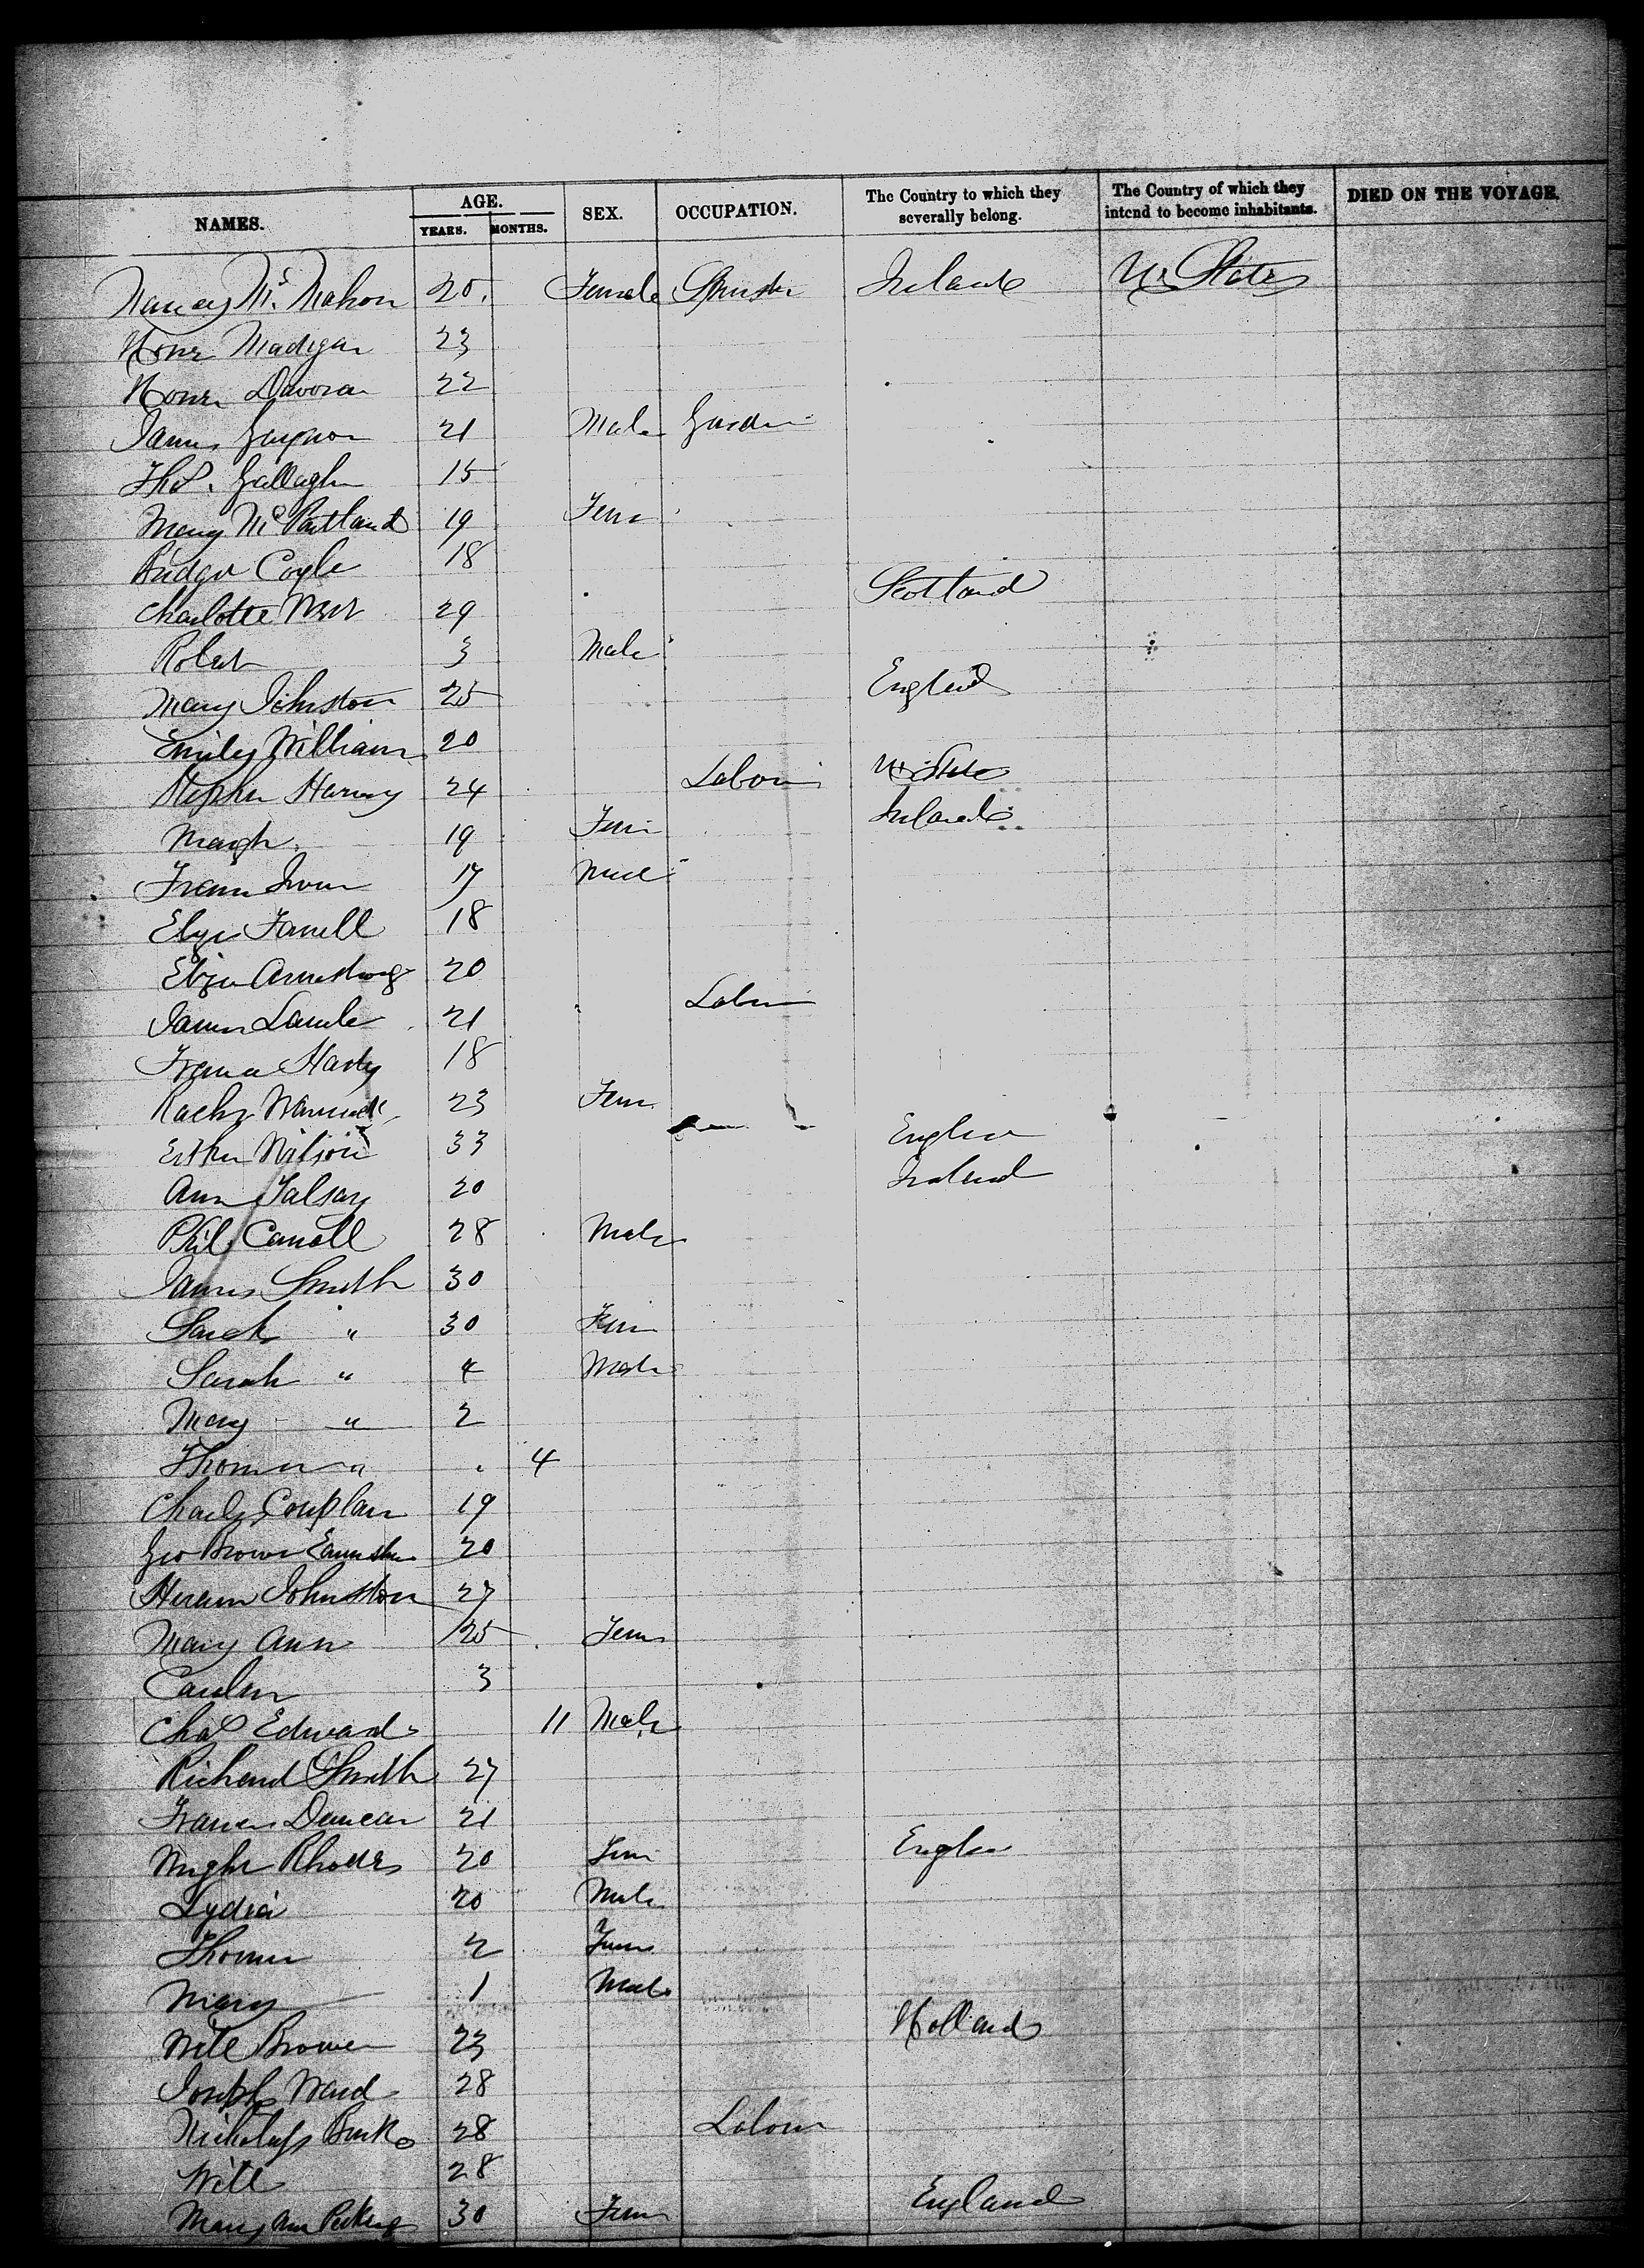 NAMES. AGE. YEARS. MONTHS. SEX. OCCUPATION. The Country to which they severally belong. The Country of which they intend to become inhabitants. DIED ON THE VOYAGE.
Nancy Mc. Mahon 20. Female Spinster Ireland U. States
Honr Madigan 23
Honr Davoran 22
James 21 Male
Thos. Gallagher 15
Mary McPartland 19 Fem
Bridget Coyle 18
Charlotte 29 Scotland
Robert 3 Male
Mary Johnston 25 England
Emily William 20
Stephen Harvey 24 Labour U. State
Margt. 19 Fem Ireland
17 Male
Eliza Farrell 18
Eliza Armstrong 20
James 21 Labour
Hardy 18
23 Fem
Esther Wilson 33 England
Ann 20 Ireland
Phil Carroll 28 Male
James Smith 30
Sarah " 30 Fem
Sarah " 4 Male
Mary " 2
Thomas " . 4
Charles 19
Geo Brown 20
Hiram Johnston 27
Mary Ann 25 Fem
3
Chas Edward 11 Male
Richard Smith 27
Francis Duncan 21
Rhodes 20 Fem England
Lydia 20 Male
Thomas 2 Fem
Mary 1 Male
Will Brower 23 Holland
Joseph Ward 28
Nicholass Burke 28 Labour
Will 28
Mary Ann 30 Fem England